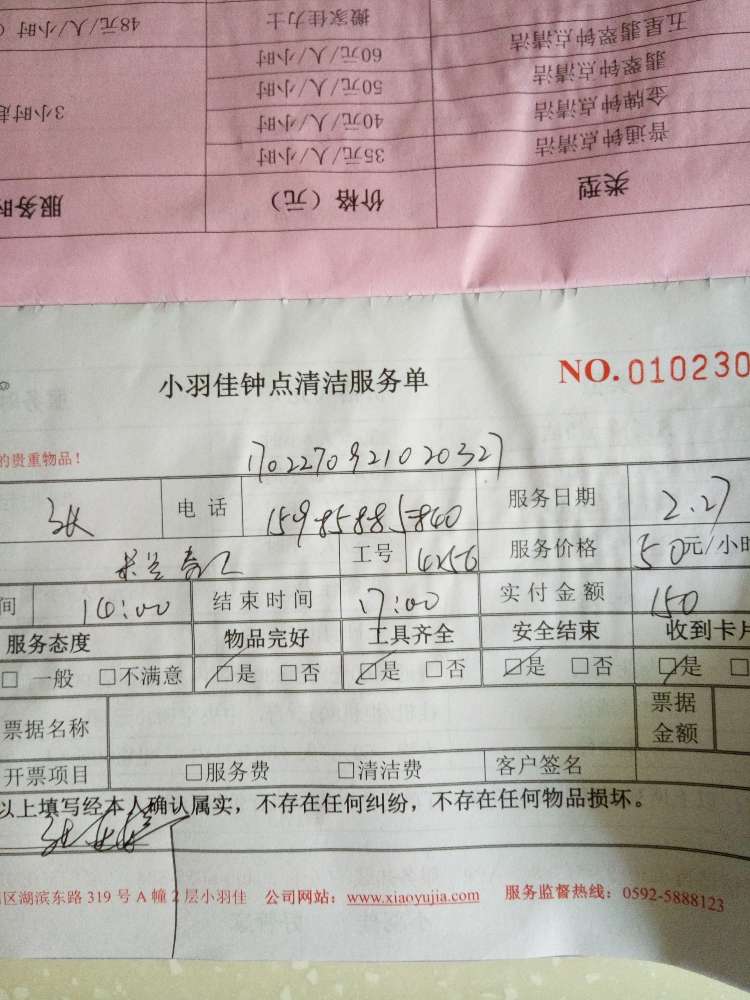 48元/人/小时（
搬家佳力士
五星翡翠钟点清洁
60元/人/小时
翡翠钟点清洁
50元/人/小时
金牌钟点清洁
3小时起
40元/人/小时
普通钟点清洁
35元/人/小时
服务时
价格（元）
类型
小羽佳钟点清洁服务单
NO.010230
的贵重物品！
1702270921020327
张 电话 15985885840 服务日期 2.27
工号 4256 服务价格 50元/小时
间 14:00 结束时间 17:00 实付金额 150
服务态度 物品完好 工具齐全 安全结束 收到卡片
□一般 □不满意 □是 □否 □是 □否 □是 □否 □是 □
票据名称 票据金额
开票项目 □服务费 □清洁费 客户签名
以上填写经本人确认属实，不存在任何纠纷，不存在任何物品损坏。
区湖滨东路 319 号 A 幢 2 层小羽佳 公司网站：www.xiaoyujia.com 服务监督热线：0592-5888123